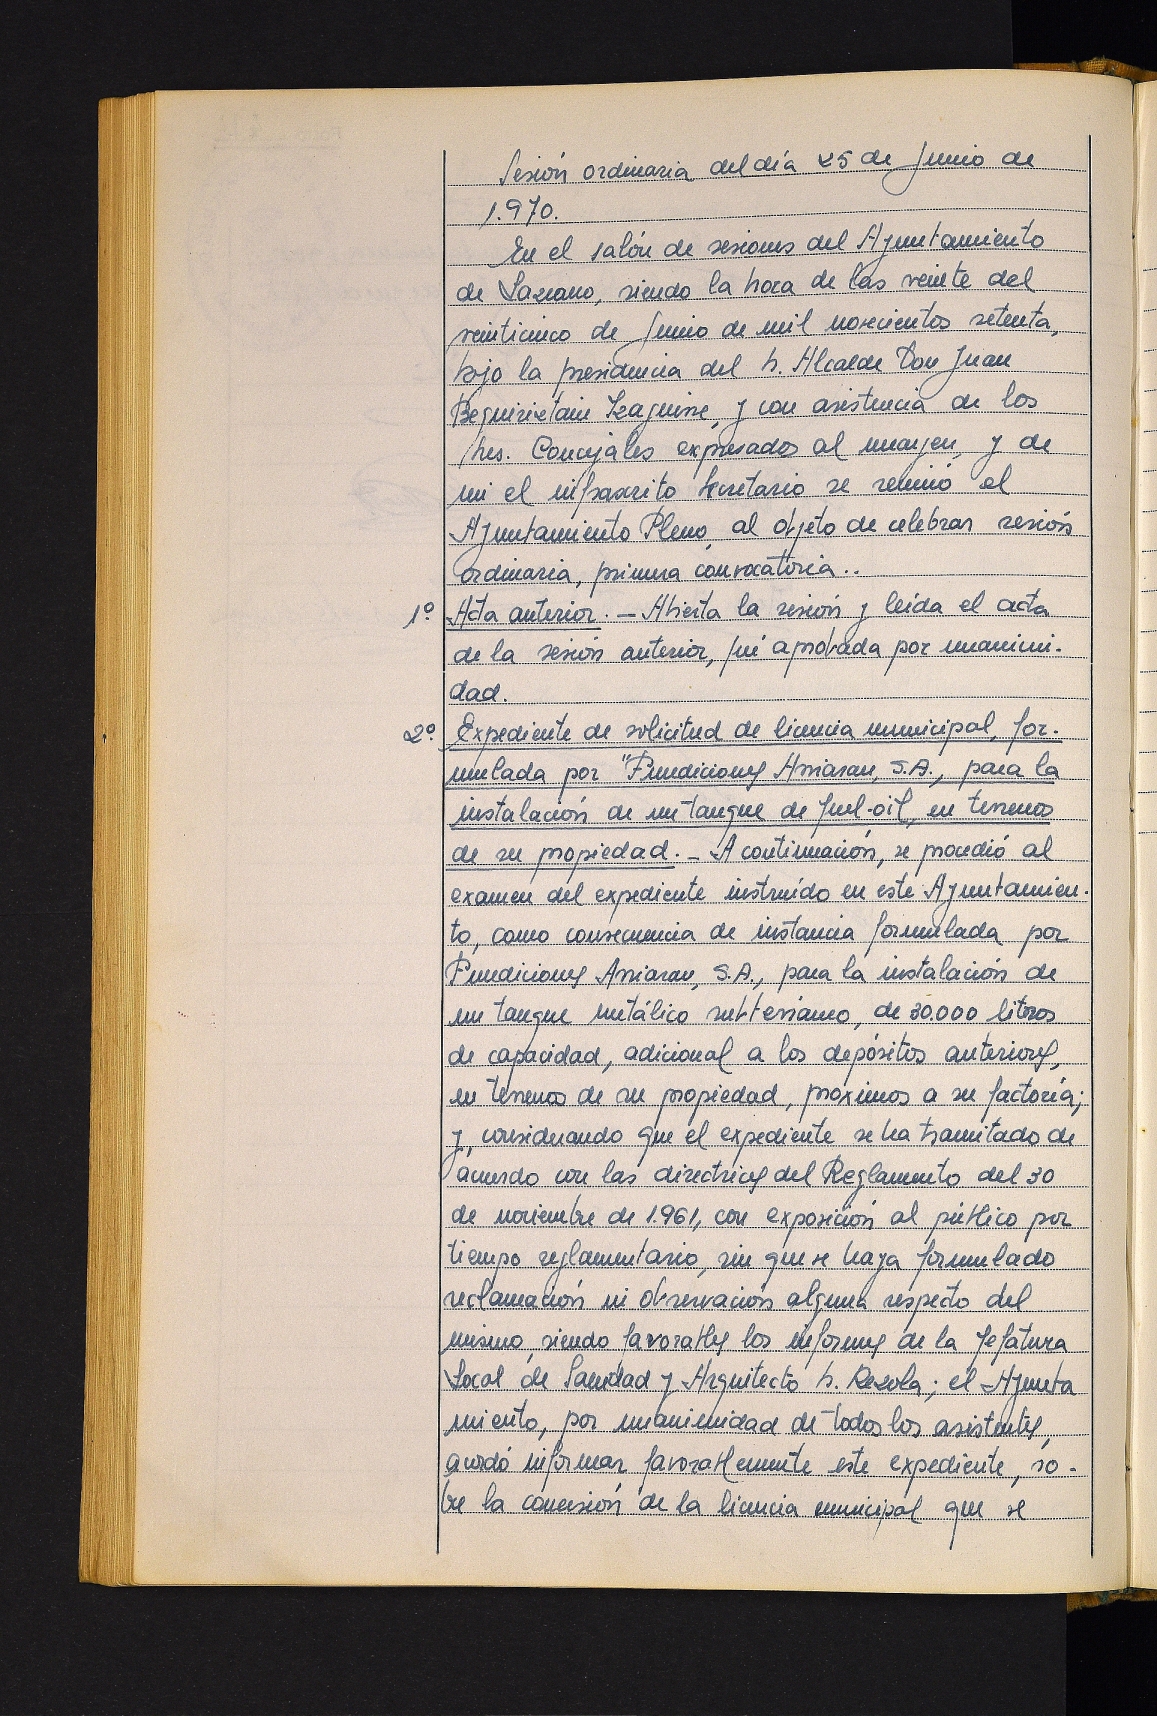 Sesión ordinaria del día 25 de Junio de
1.970.
En el salón de sesiones del Ayuntamiento
de Lazcano, siendo la hora de las veinte del
veinticinco de Junio de mil novecientos setenta,
bajo la presidencia del Sr. Alcalde Don Juan
Beguiristain Izaguirre, y con asistencia de los
Sres. Concejales expresados al margen, y de
mi el infrascrito Secretario se reunió el
Ayuntamiento Pleno, al objeto de celebrar sesión
ordinaria, primera convocatoria..
1º Acta anterior. - Abierta la sesión y leída el acta
de la sesión anterior, fué aprobada por unanimi-
dad.
2º Expediente de solicitud de licencia municipal, for-
mulada por "Fundiciones Arriaran, S.A., para la
instalación de un tanque de fuel-oil, en terrenos
de su propiedad. - A continuación, se procedió al
examen del expediente instruído en este Ayuntamien-
to, como consecuencia de instancia formulada por
Fundiciones Arriaran, S.A., para la instalación de
un tanque metálico subterráneo, de 30.000 litros
de capacidad, adicional a los depósitos anteriores,
en terrenos de su propiedad, próximos a su factoría;
y, considerando que el expediente se ha tramitado de
acuerdo con las directrices del Reglamento del 30
de noviembre de 1.961, con exposición al público por
tiempo reglamentario, sin que se haya formulado
reclamación ni observación alguna respecto del
mismo, siendo favorables los informes de la Jefatura
Local de Sanidad y Arquitecto Sr. Rezola; el Ayunta
miento, por unanimidad de todos los asistentes,
acordó informar favorablemente este expediente, so-
bre la concesión de la licencia municipal que se